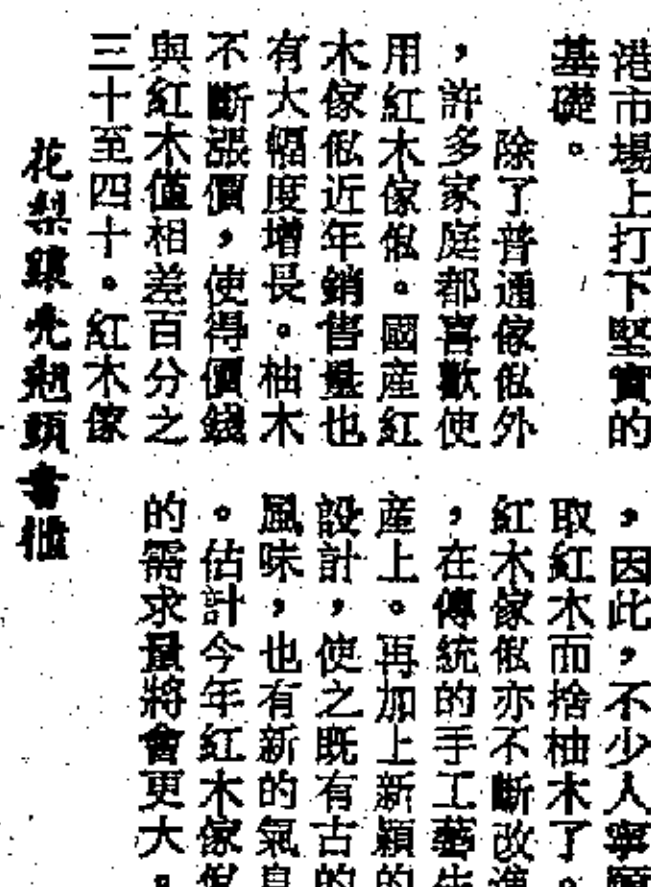 港市場上打下堅實的
基礎。
除了普通傢俬外
，許多家庭都喜歡使
用紅木傢俬。國産紅
木傢俬近年銷售量也
有大幅度增長。柚木
不斷漲價，使得價錢
與紅木僅相差百分之
三十至四十。紅木傢
，因此，不少人寧願
取紅木而捨柚木了。
紅木傢俬亦不斷改進
，在傳統的手工藝生
産上。再加上新穎的
設計，使之既有古的
風味，也有新的氣息
。估計今年紅木傢俬
的需求量將會更大。
花梨鑲 頭書櫃